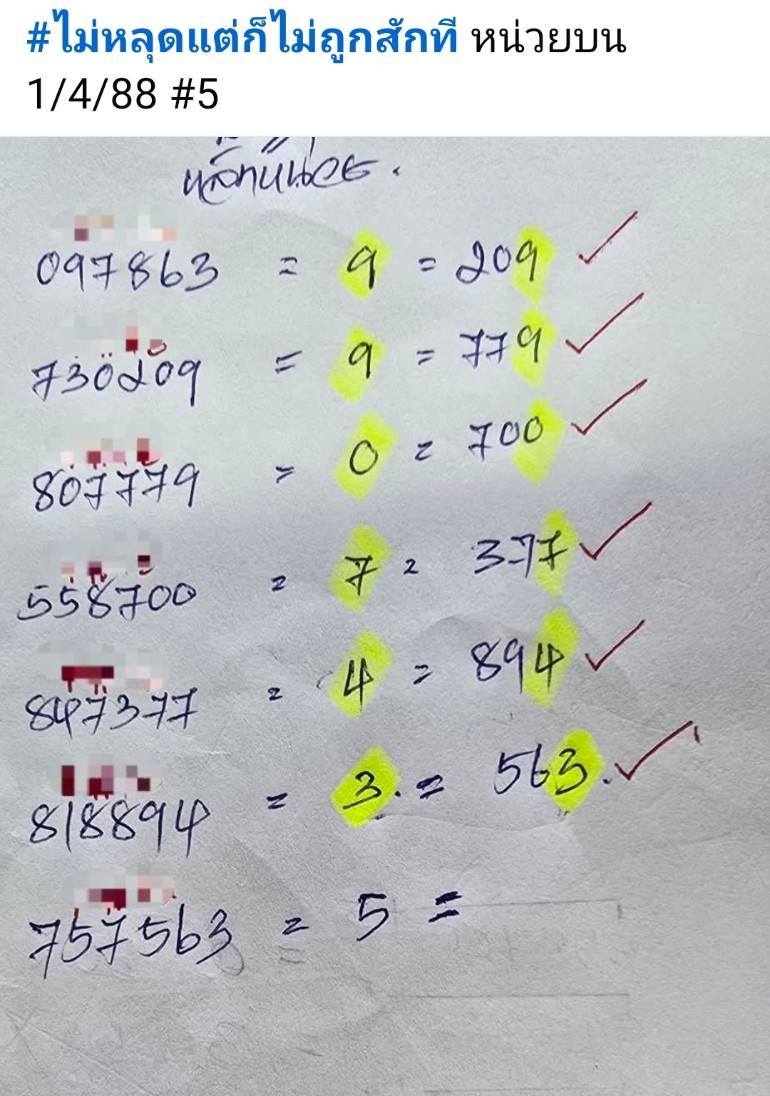 #ไม่หลุดแต่ก็ไม่ถูกสักที หน่วยบน
1/4/88 #5
หลักหน่วย.
097863 = 9 = 209 ✓
730209 = 9 = 779 ✓
807779 = 0 = 700 ✓
558700 = 7 = 377 ✓
847377 = 4 = 894 ✓
818894 = 3. = 563. ✓
757563 = 5 =